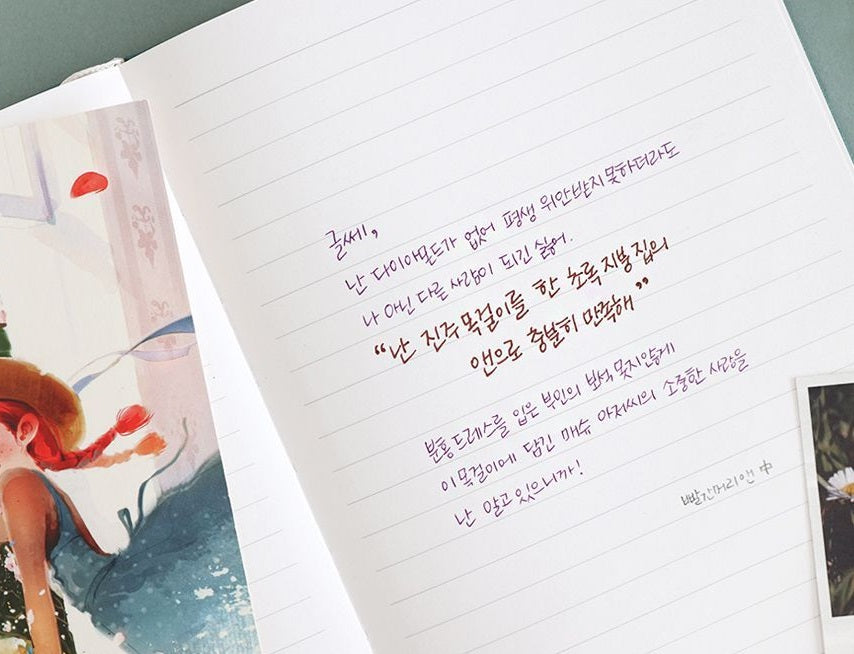 글쎄,
난 다이아몬드가 없어 평생 위안받지 못하더라도
나 아닌 다른 사람이 되긴 싫어.
“난 진주목걸이를 한 초록지붕집의
앤으로 충분히 만족해”
분홍드레스를 입은 부인의 보석 못지않게
이 목걸이에 담긴 매슈 아저씨의 소중한 사랑을
난 알고 있으니까!
빨간머리앤 中